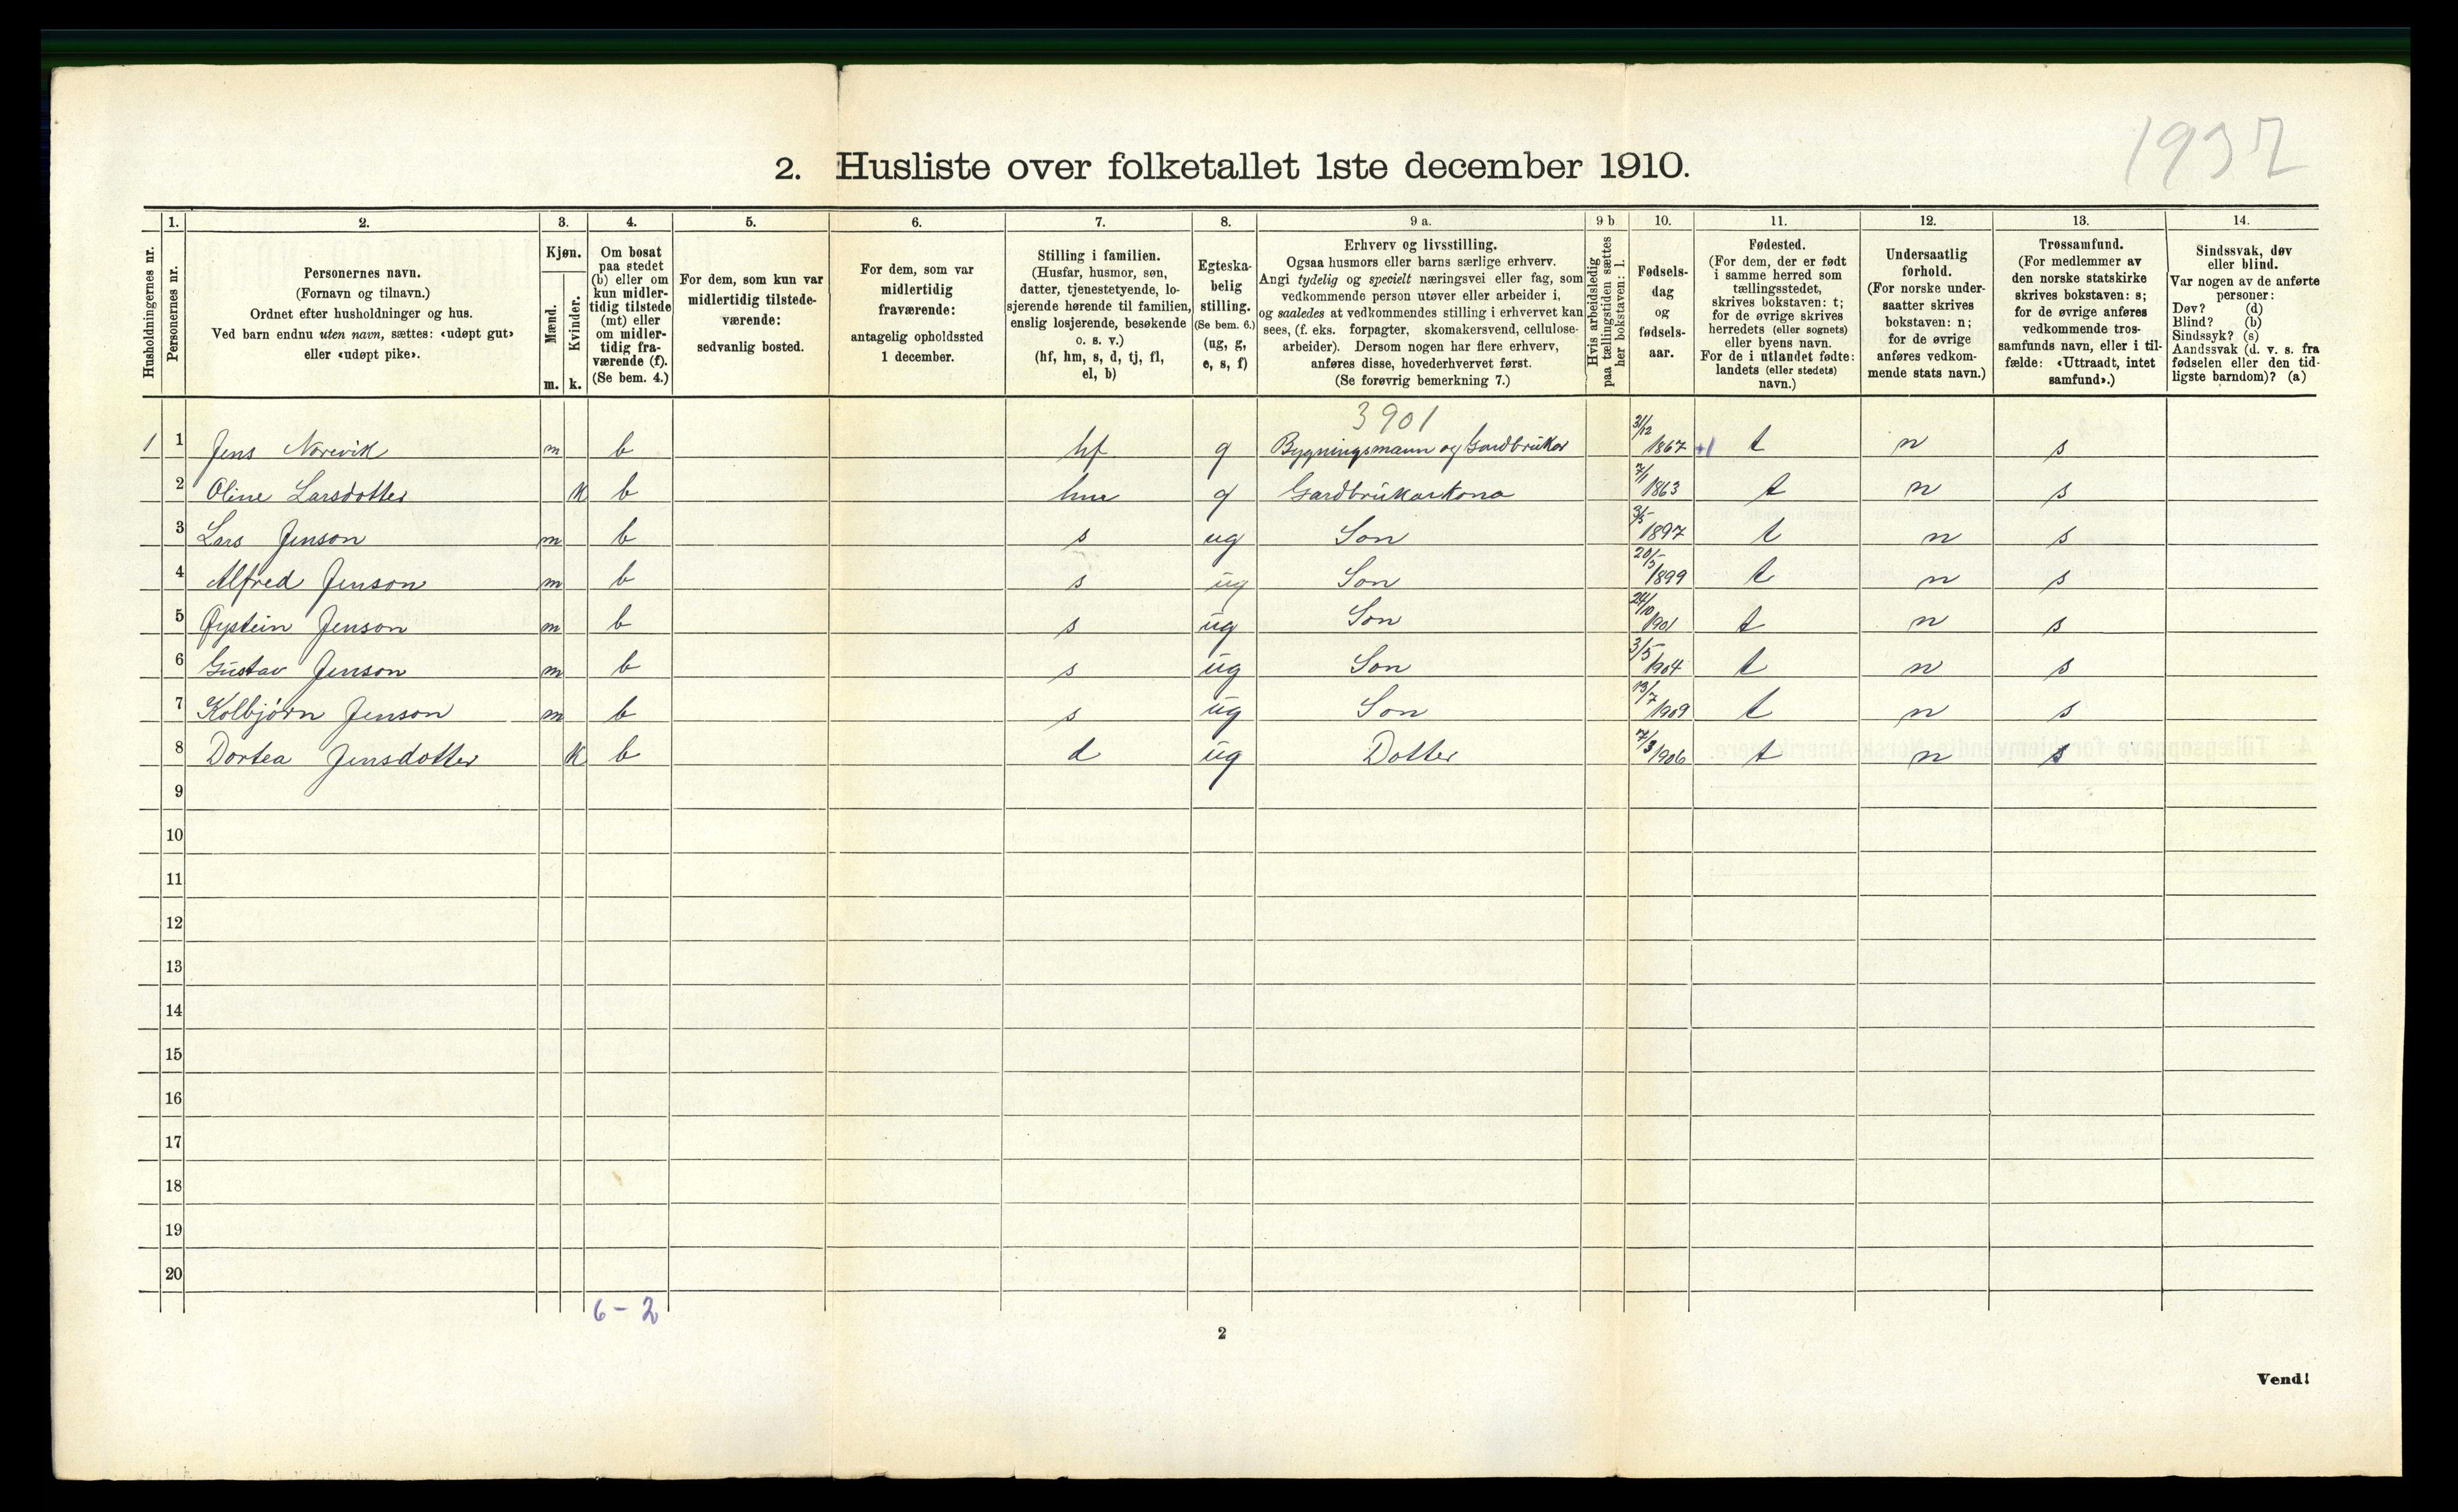 1937
2. Husliste over folketallet 1ste december 1910.
Husholdningernes nr.
1.
Personernes nr.
2.
Personernes navn.
(Fornavn og tilnavn.)
Ordnet efter husholdninger og hus.
Ved barn endnu uten navn, sættes: «udøpt gut»
eller «udøpt pike».
3.
Kjøn.
Mænd.
m.
Kvinder.
k.
4.
Om bosat
paa stedet
(b) eller om
kun midler-
tidig tilstede
(mt) eller
om midler-
tidig fra-
værende (f).
(Se bem. 4.)
5.
For dem, som kun var
midlertidig tilstede-
værende:
sedvanlig bosted.
6.
For dem, som var
midlertidig
fraværende:
antagelig opholdssted
1 december.
7.
Stilling i familien.
(Husfar, husmor, søn,
datter, tjenestetyende, lo-
sjerende hørende til familien,
enslig losjerende, besøkende
o. s. v.)
(hf, hm, s, d, tj, fl,
el, b)
8.
Egteska-
belig
stilling.
(Se bem. 6.)
(ug, g,
e, s, f)
9 a.
Erhverv og livsstilling.
Ogsaa husmors eller barns særlige erhverv.
Angi tydelig og specielt næringsvei eller fag, som
vedkommende person utøver eller arbeider i,
og saaledes at vedkommendes stilling i erhvervet kan
sees, (f. eks. forpagter, skomakersvend, cellulose-
arbeider). Dersom nogen har flere erhverv,
anføres disse, hovederhvervet først.
(Se forøvrig bemerkning 7.)
9 b
Hvis arbeidsledig
paa tællingstiden sættes
her bokstaven: l.
10.
Fødsels-
dag
og
fødsels-
aar.
11.
Fødested.
(For dem, der er født
i samme herred som
tællingsstedet,
skrives bokstaven: t;
for de øvrige skrives
herredets (eller sognets)
eller byens navn.
For de i utlandet fødte:
landets (eller stedets)
navn.)
12.
Undersaatlig
forhold.
(For norske under-
saatter skrives
bokstaven: n;
for de øvrige
anføres vedkom-
mende stats navn.)
13.
Trossamfund.
(For medlemmer av
den norske statskirke
skrives bokstaven: s;
for de øvrige anføres
vedkommende tros-
samfunds navn, eller i til-
fælde: «Uttraadt, intet
samfund».)
14.
Sindssvak, døv
eller blind.
Var nogen av de anførte
personer:
Døv? (d)
Blind? (b)
Sindssyk? (s)
Aandssvak (d. v. s. fra
fødselen eller den tid-
ligste barndom)? (a)
3901
1 1 Jens Norevik m b hf g Bygningsmann og Gardbrukar 31/12 1867 t n s
2 Oline Larsdotter k b hm g Gardbrukarkona 7/1 1863 t n s
3 Lars Jenson m b s ug Son 3/5 1897 t n s
4 Alfred Jenson m b s ug Son 20/5 1899 t n s
5 Øystein Jenson m b s ug Son 24/10 1901 t n s
6 Gustav Jenson m b s ug Son 3/5 1904 t n s
7 Kolbjørn Jenson m b s ug Son 13/7 1909 t n s
8 Dortea Jensdotter k b d ug Dotter 7/3 1906 t n s
9
10
11
12
13
14
15
16
17
18
19
20
6 - 2
2
Vend!